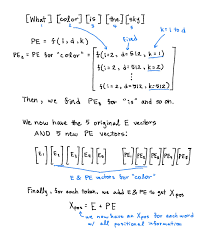 [What] [color] [is] [the] [sky]
1 2 3 4 5
PE = f(i, d, k)
fixed
k = 1 to d
PE₂ = PE for "color" = [f(i=2, d=512, k=1)
f(i=2, d=512, k=2)
⋮
f(i=2, d=512, k=512)]
Then, we find PE₃ for "is" and so on.
We now have the 5 original E vectors
AND 5 new PE vectors:
[E₁] [E₂] [E₃] [E₄] [E₅] [PE₁] [PE₂] [PE₃] [PE₄] [PE₅]
E & PE vectors for "color"
Finally, for each token, we add E & PE to get Xpos
Xpos = E + PE
we now have an Xpos for each word
w/ all positional information